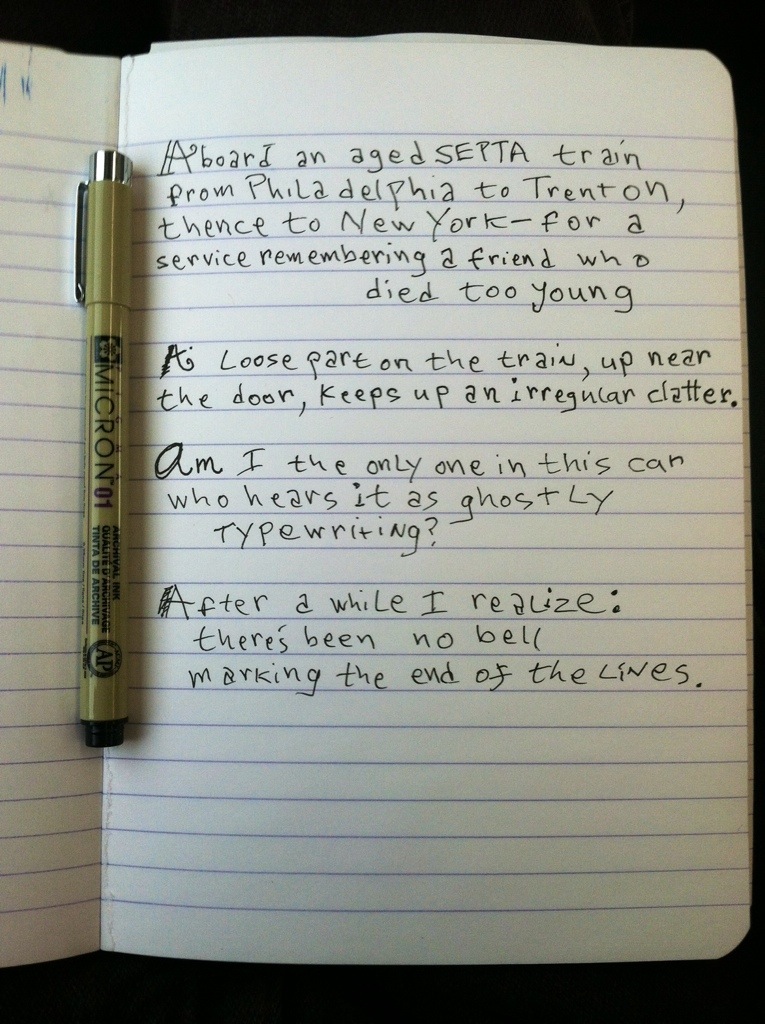 Aboard an aged SEPTA train
from Philadelphia to Trenton,
thence to New York – for a
service remembering a friend who
died too young
A loose part on the train, up near
the door, keeps up an irregular clatter.
Am I the only one in this car
who hears it as ghostly
typewriting?
After a while I realize:
there's been no bell
marking the end of the lines.
MICRON 01
ARCHIVAL INK
QUALITÉ D'ARCHIVAGE
TINTA DE ARCHIVE
AP